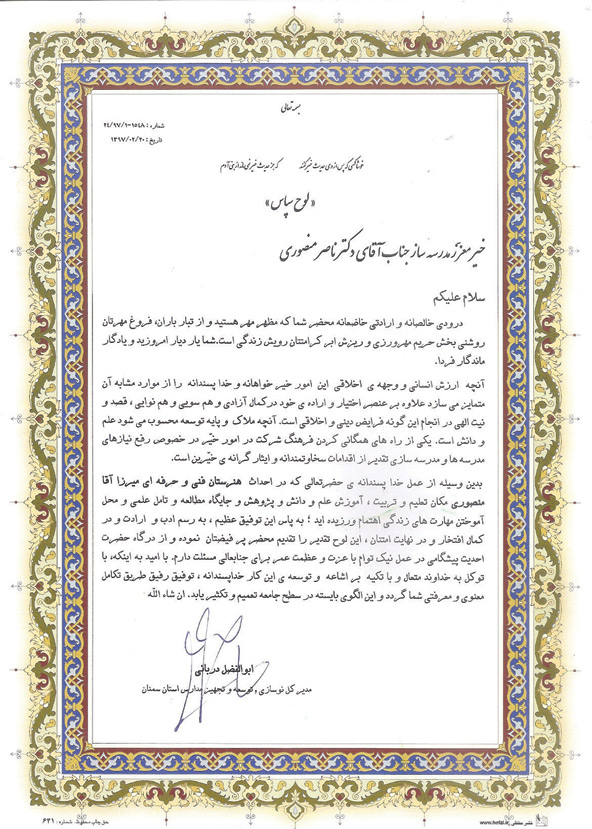 بسمه تعالی
شماره : ۲۴/۹۷/۱-۱۵۴۸
تاریخ : ۱۳۹۷/۰۲/۲۰
«لوح سپاس»
خیر معزز مدرسه ساز جناب آقای دکتر ناصر منصوری
سلام علیکم
درودی خالصانه و ارادتی خاضعانه محضر شما که مظهر مهر هستید و از تبار باران، فروغ مهرتان
روشنی بخش حریم مهرورزی و ریزش ابر کرامتتان رویش زندگی است.شما یار دیار امروزید و یادگار
ماندگار فردا.
آنچه ارزش انسانی و وجهه ی اخلاقی این امور خیر خواهانه و خدا پسندانه را از موارد مشابه آن
متمایز می سازد علاوه بر عنصر اختیار و اراده ی خود درکمال آزادی و هم سویی و هم نوایی ، قصد و
نیت الهی در انجام این گونه فرایض دینی و اخلاقی است. آنچه ملاک و پایه توسعه محسوب می شود علم
و دانش است. یکی از راه های همگانی کردن فرهنگ شرکت در امور خیّر در خصوص رفع نیازهای
مدرسه ها و مدرسه سازی تقدیر از اقدامات سخاوتمندانه و ایثار گرانه ی خیّرین است.
بدین وسیله از عمل خدا پسندانه ی حضرتعالی که در احداث هنرستان فنی و حرفه ای میرزا آقا
منصوری مکان تعلیم و تربیت ، آموزش علم و دانش و پژوهش و جایگاه مطالعه و تامل علمی و محل
آموختن مهارت های زندگی اهتمام ورزیده اید ؛ به پاس این توفیق عظیم ، به رسم ادب و ارادت و در
کمال افتخار و در نهایت امتنان ، این لوح تقدیر را تقدیم محضر پر فیضتان نموده و از درگاه حضرت
احدیت پیشگامی در عمل نیک توام با عزت و عظمت عمر برای جنابعالی مسئلت دارم. با امید به اینکه، با
توکل به خداوند متعال و با تکیه بر اشاعه و توسعه ی این کار خداپسندانه ، توفیق رفیق طریق تکامل
معنوی و معرفتی شما گردد و این الگوی بایسته در سطح جامعه تعمیم و تکثیر یابد. ان شاء الله
ابوالفضل دربانی
مدیر کل نوسازی ، توسعه و تجهیز مدارس استان سمنان
حق چاپ محفوظ. شماره : ۶۲۱
www.hefzi.ir